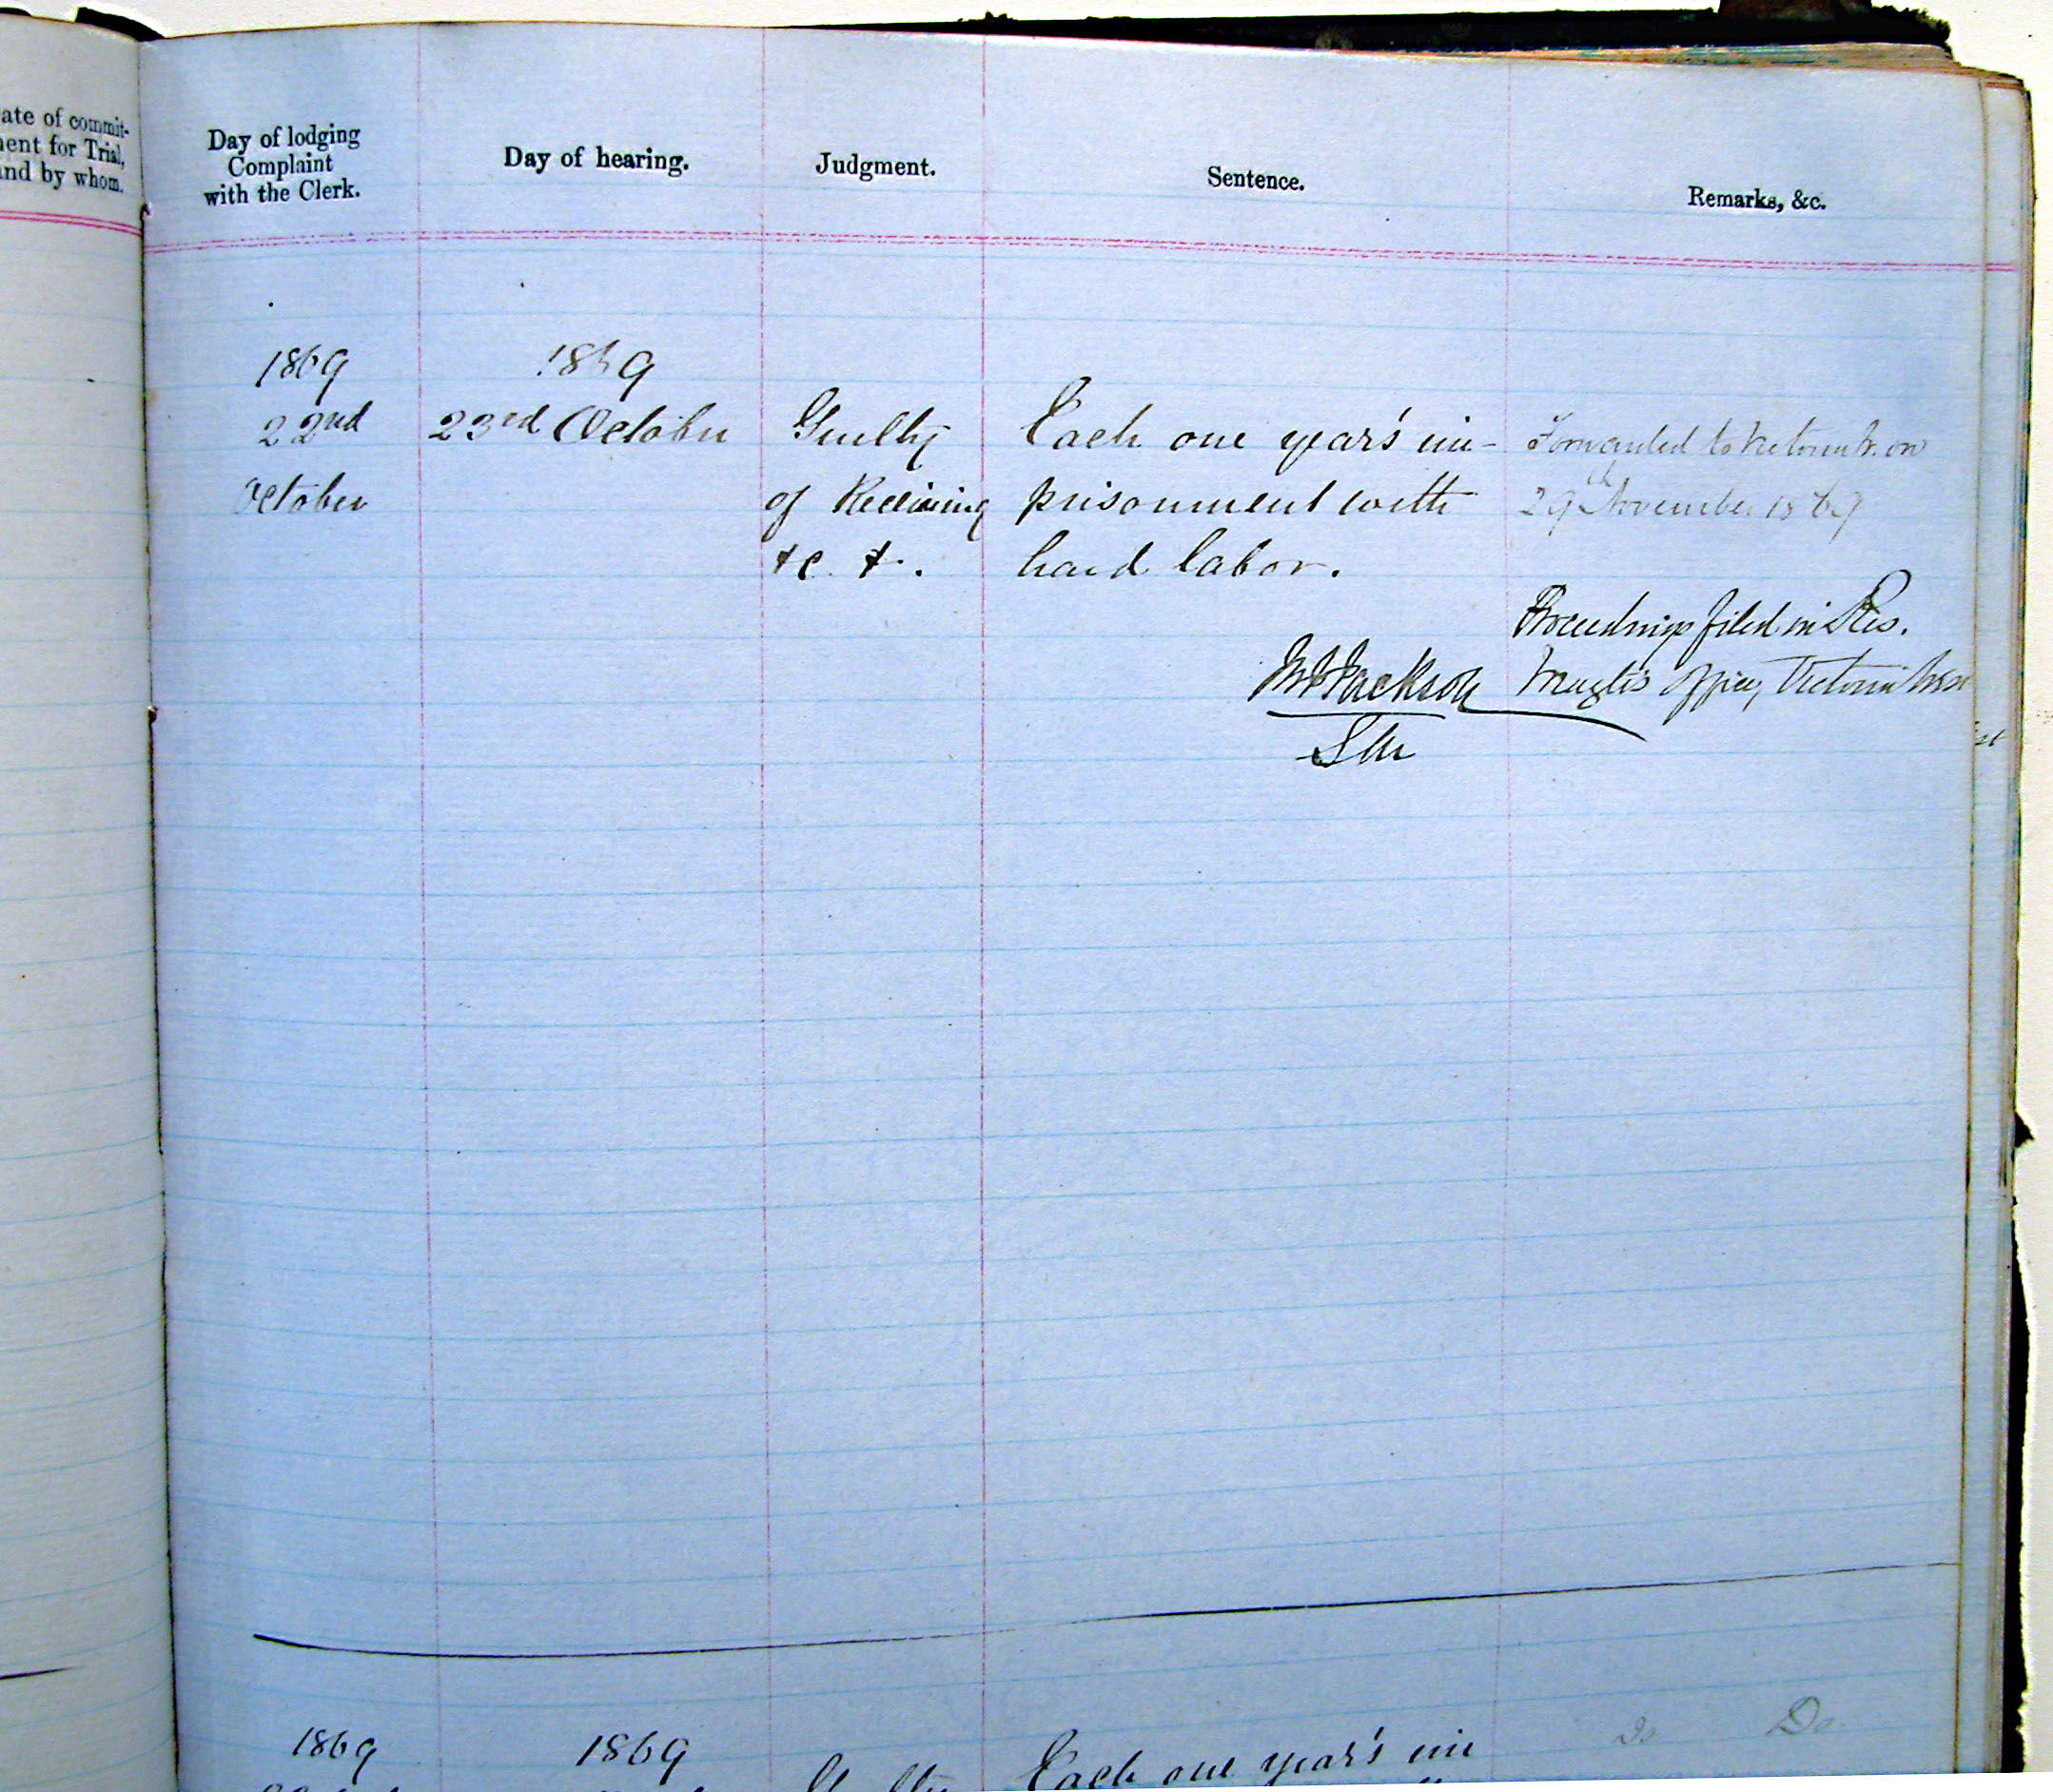 ate of commit-
ment for Trial,
and by whom.
Day of lodging
Complaint
with the Clerk.
Day of hearing.
Judgment.
Sentence.
Remarks, &c.
1869
22nd
October
1869
23rd October
Guilty
of Receiving
&c &.
Each one year's im-
prisonment with
hard labor.
Jackson
Forwarded to Victoria W. on
29th November 1869
Proceedings filed in Res.
Magts Office, Victoria West
1869
1869
Guilty
Each one year's im
Do Do